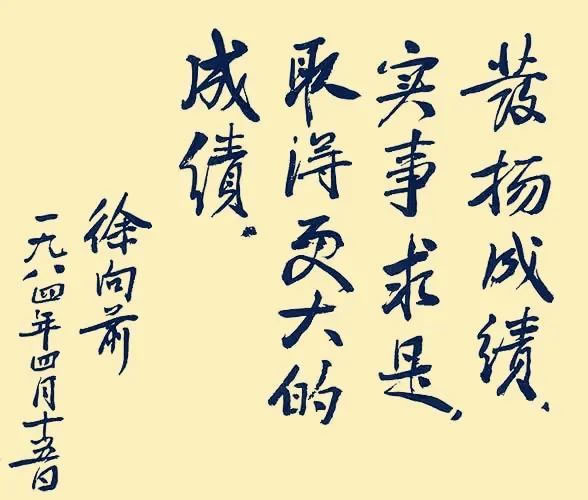 發扬成绩、
实事求是,
取得更大的
成绩.
徐向前
一九八四年四月十五日